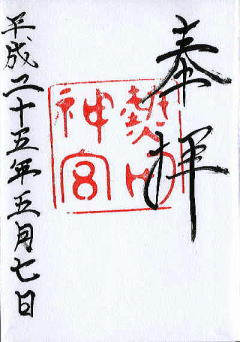 奉拝
熱田
神宮
平成二十五年五月七日